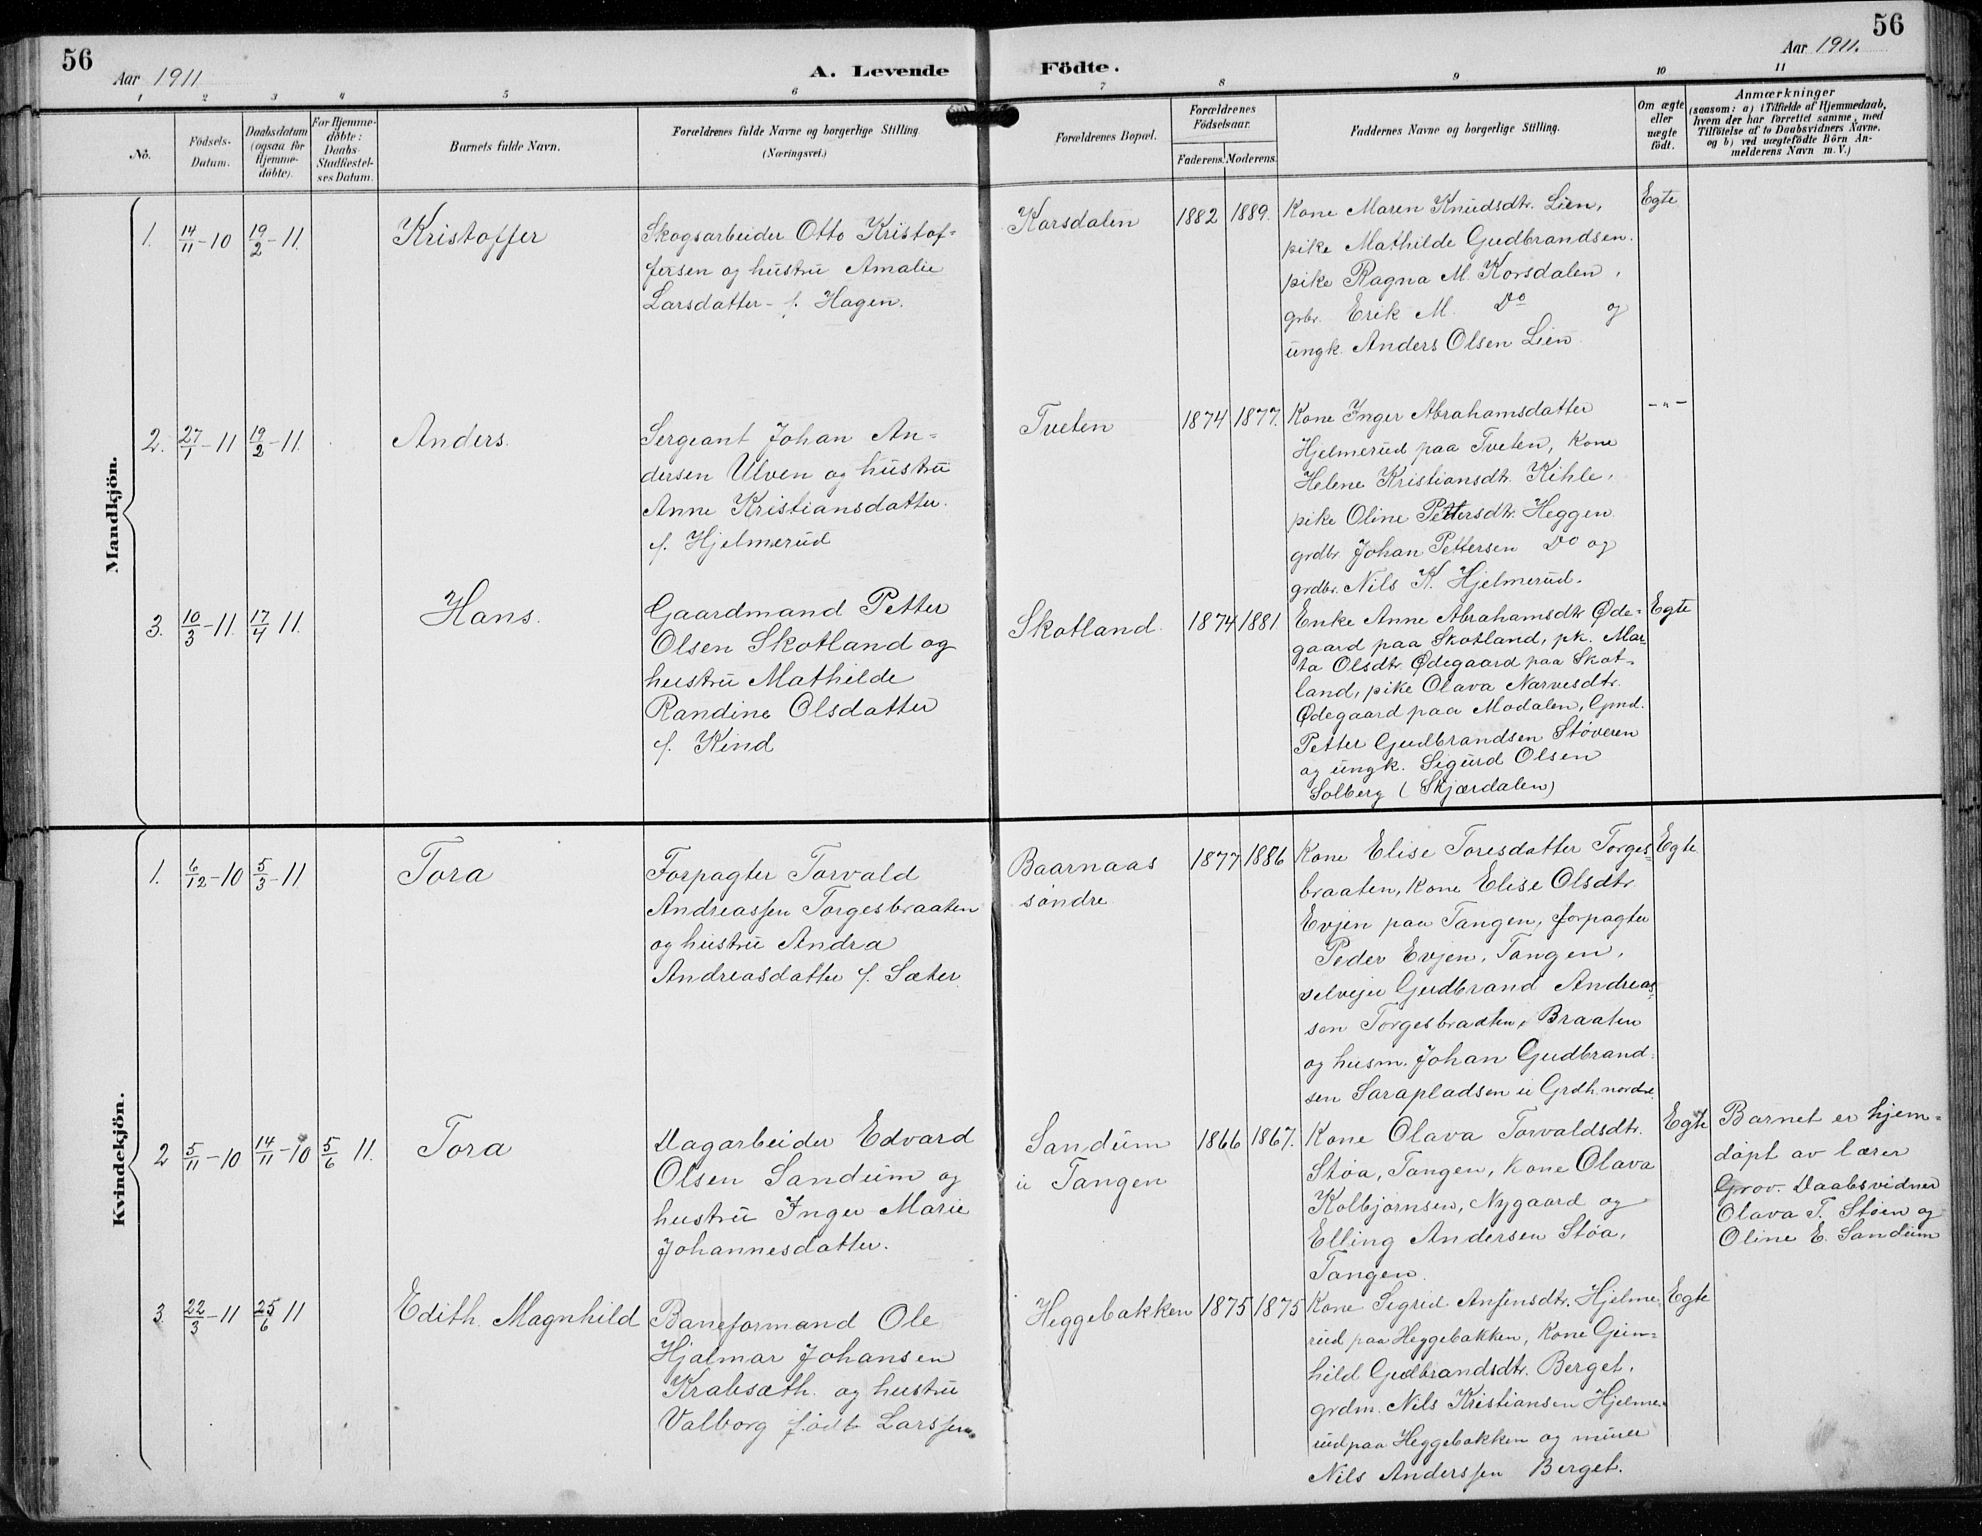 56
Aar 1911
A. Levende
Födte.
Aar 1911.
56
1 2 3 4 5 6 7 8 9 10 11
No.
Födsels-
Datum.
Daabsdatum
(ogsaa for
Hjemme-
döbte).
For Hjemme-
döbte:
Daabs-
Stadfæstel-
ses Datum.
Barnets fulde Navn.
Forældrenes fulde Navne og borgerlige Stilling.
(Næringsvei.)
Forældrenes Bopæl.
Forældrenes
Födselsaar.
Faderens. Moderens.
Faddernes Navne og borgerlige Stilling.
Om ægte
eller
uægte
födt.
Anmærkninger
(saasom: a) i Tilfælde af Hjemmedaab,
hvem der har forrettet samme, med
Tilföielse af to Daabsvidners Navne,
og b) ved uægtefödte Börn An-
melderens Navn m. V.)
Mandkjön.
1. 14/11-10 19/2-11.
Kristoffer
Skogsarbeider Otto Kristof-
fersen og hustru Amalie
Larsdatter - f. Hagen.
Korsdalen
1882 1889.
Kone Maren Knudsdtr. Lien,
pike Mathilde Gudbrandsen.
pike Ragna M. Korsdalen,
grbr. Erik M. Do og
ungk. Anders Olsen Lien
Egte
2. 27/1-11 19/2-11.
Anders.
Sergeant Johan An-
dersen Ulven og hustru
Anne Kristiansdatter.
f. Hjelmerud
Tveten
1874 1877.
Kone Inger Abrahamsdatter
Hjelmerud paa Tveten, Kone
Helene Kristiansdtr. Kihle,
pike Oline Pettersdtr. Heggen
grdbr. Johan Pettersen Do og
grdbr. Nils K. Hjelmerud.
-"-
3. 10/3-11. 17/4 11.
Hans.
Gaardmand Petter
Olsen Skotland og
hustru Mathilde
Randine Olsdatter
f. Kind
Skotland.
1874 1881
Enke Anne Abrahamsdtr Øde-
gaard paa Skotland, pk. Mar-
ta Olsdtr. Ødegaard paa Skot-
land, pike Olava Narvesdtr.
Ødegaard paa Modalen, Gmd.
Petter Gudbrandsen Støveren
og ungk. Sigurd Olsen
Solberg (Skjærdalen)
Egte
Kvindekjön.
1. 6/12-10 5/3-11
Tora
Forpagter Torvald
Andreassen Torgesbraaten
og hustru Andra
Andreasdatter f. Sæter.
Baarnaas
søndre
1877 1886
Kone Elise Toresdatter Torges-
braaten, Kone Elise Olsdtr.
Evjen paa Tangen, forpagter
Peder Evjen, Tangen,
selveier Gudbrand Andreas-
sen Torgesbraaten, Braaten
og husm. Johan Gudbrand-
sen Sarapladsen u Grdh. nordre
Egte
2 5/11-10 14/11-10 5/6 11.
Tora
Dagarbeider Edvard
Olsen Sandum og
hustru Inger Marie
Johannesdatter.
Sandum
u Tangen
1866 1867.
Kone Olava Torvaldsdtr.
Støa, Tangen, Kone Olava
Kolbjørnsen, Nygaard og
Elling Andersen Støa,
Tangen.
Egte
Barnet er hjem-
døpt av lærer
Grov. Daabsvidner
Olava T. Støen og
Oline E. Sandum
3. 22/3-11 25/6 11
Edith Magnhild
Baneformand Ole
Hjalmar Johansen
Krabsæth. og hustru
Valborg født Larssen.
Heggebakken
1875 1875
Kone Sigrid Anfinsdtr. Hjelme-
rud paa Heggebakken, Kone Gun-
hild Gudbrandsdtr. Berget,
grdm. Nils Kristiansen Hjelme-
rud paa Heggebakken og murer
Nils Anderssen Berget.
Egte